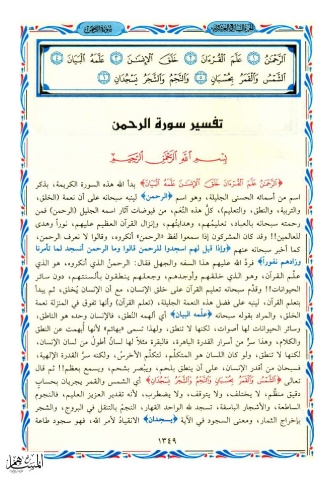 سورة الرحمن
الرَّحْمَٰنُ ۝ عَلَّمَ الْقُرْءَانَ ۝ خَلَقَ الْإِنسَٰنَ ۝ عَلَّمَهُ الْبَيَانَ ۝
الشَّمْسُ وَالْقَمَرُ بِحُسْبَانٍ ۝ وَالنَّجْمُ وَالشَّجَرُ يَسْجُدَانِ ۝
تفسير سورة الرحمن
بِسْمِ اللَّهِ الرَّحْمَٰنِ الرَّحِيمِ
﴿الرَّحْمَٰنُ عَلَّمَ الْقُرْءَانَ خَلَقَ الْإِنسَٰنَ عَلَّمَهُ الْبَيَانَ﴾ بدأ الله هذه السورة الكريمة، بذكر
اسم من أسمائه الحسنى الجليلة، وهو اسم ﴿الرحمن﴾ لينبه سبحانه على أن نعمة (الخلق،
والتربية، والنطق، والتعليم)، كلُّ هذه النِّعَم، من فيوضات آثار اسمه الجليل (الرحمن) فمن
رحمته سبحانه بالعباد، تعليمُهم، وهدايتُهم، وإنزال القرآن العظيم عليهم، نوراً وهدى
للعالمين!! وقد كان المشركون إذا سمعوا لفظ «الرحمن» أنكروه، وقالوا لا نعرف الرحمن،
كما أخبر سبحانه عنهم ﴿وإذا قيل لهم اسجدوا للرحمن قالوا وما الرحمن أنسجد لما تأمرنا
وزادهم نفوراً﴾ فردَّ الله عليهم هذا السفه والجهل فقال: الرحمنُ الذي أنكروه، هو الذي
علَّم القرآن، وهو الذي خلقهم وأوجدهم، وجعلهم ينطقون بألسنتهم، دون سائر
الحيوانات!! وقدَّم سبحانه تعليم القرآن على خلق الإنسان، مع أن الإنسان يُخلق، ثم يبدأ
بتعلم القرآن، لينبه على فضل هذه النعمة الجليلة، (تعلم القرآن) وأنها تفوق في المنزلة نعمة
الخلق، والمراد بقوله سبحانه ﴿علمه البيان﴾ أي ألهمه النُّطق، فالإنسان وحده هو الناطق
وسائر الحيوانات لها أصوات، لكنها لا تنطق، ولهذا تسمى «بهائم» لأنها أُبهمت عن النطق
والكلام، وهذا سرٌّ من أسرار القدرة الباهرة، فالبقرة مثلاً لها لسانٌ أطول من لسان الإنسان،
لكنها لا تنطق، ولو كان اللسان هو المتكلِّم، لتكلَّم الأخرسُ، ولكنه سرُّ القدرة الإلهية،
فسبحان من أقدر الإنسان، على أن ينطق بلحم، ويبصر بشحم، ويسمع بعظم!! ثم قال
تعالى ﴿الشَّمْسُ وَالْقَمَرُ بِحُسْبَانٍ وَالنَّجْمُ وَالشَّجَرُ يَسْجُدَانِ﴾ أي الشمس والقمر يجريان بحسابٍ
دقيق منظَّم، لا يختلف، ولا يتوقف، ولا يضطرب، لأنه تقدير العزيز العليم، والنجوم
الساطعة، والأشجار الباسقة، تسجد لله الواحد القهار، النجمُ بالتنقل في البروج، والشجر
بإخراج الثمار، ومعنى السجود في الآية ﴿يسجدان﴾ الانقيادُ لأمر الله، فهو سجود طاعة
١٣٤٩